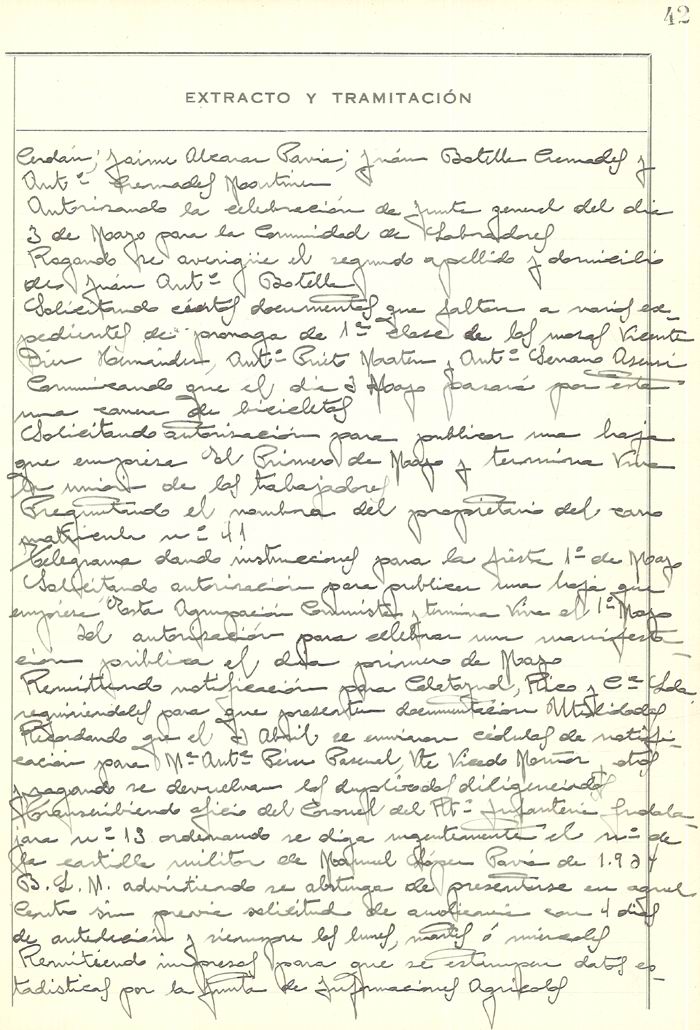 42
EXTRACTO Y TRAMITACIÓN
Cerdán; Jaime Alcaraz Pavia; Juán Botella Cremades y
Antº Cremades Martinez
Autorizando la celebración de Junta general del dia
3 de Mayo para la Comunidad de Labradores
Rogando se averigüe el segundo apellido y domicilio
de Juán Antº Botella
Solicitando ciertos documentos que faltan a varios ex-
pedientes de prorroga de 1ª clase de los mozos Vicente
Diez Hernández, Antº Prieto Martin y Antº Serrano Asensi
Comunicando que el dia 3 Mayo pasará por esta
una carrera de bicicletas
Solicitando autorización para publicar una hoja
que empieza El Primero de Mayo y termina Viva
la unión de los trabajadores
Preguntando el nombre del propietario del carro
matricula nº 41
Telegrama dando instrucciones para la fiesta 1º de Mayo
Solicitando autorización para publicar una hoja que
empieza Esta Agrupación Comunista y termina Viva el 1º Mayo
Id autorización para celebrar una manifesta-
ción pública el dia primero de Mayo
Remitiendo notificación para Rico y Cª Lda
requiriendoles para que presenten documentación Utilidades
Recordando que el Abril se enviaron cédulas de notifi-
cación para Mª Antª Pascual, Vte Vicedo y otros
y rogando se devuelvan los duplicados diligenciados
Transcribiendo oficio del Coronel del Rtº Infanteria Guadala-
jara nº 13 ordenando se diga urgentemente el nº de
la cartilla militar de Manuel López Pavia de 1.934
B. L. M. advirtiendo se abstenga de presentarse en aquel
Centro sin previa solicitud de audiencia con 4 dias
de antelación y siempre los lunes, martes ó miercoles
Remitiendo impresos para que se estampen datos es-
tadisticos por la Junta de Informaciones Agricolas